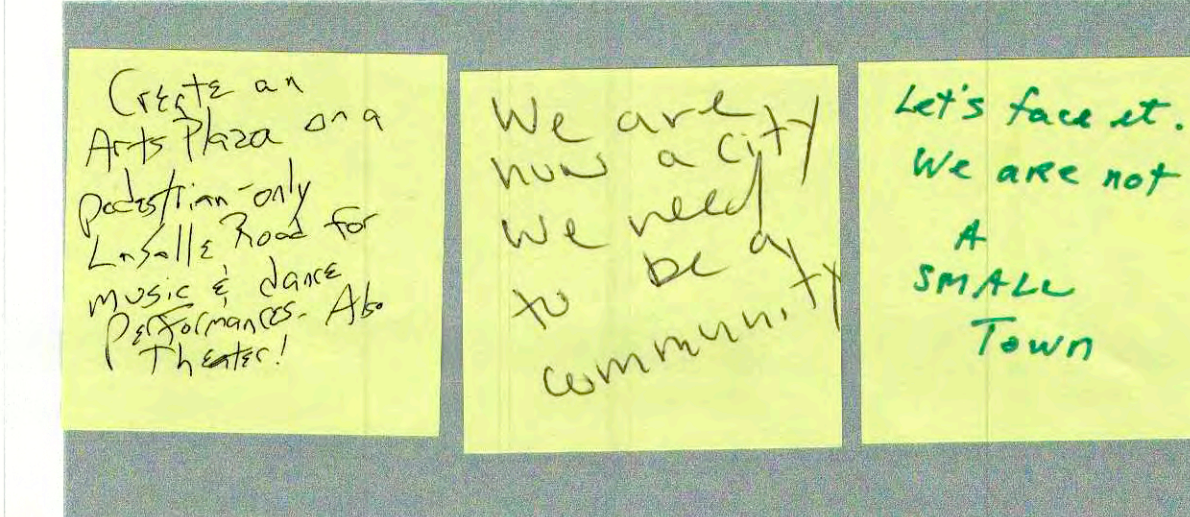 Create an
Arts Plaza on a
pedestrian-only
LaSalle Road for
music & dance
Performances. Also
Theater!
We are
now a city
we need
to be a
community
Let's face it.
We are not
A
SMALL
Town